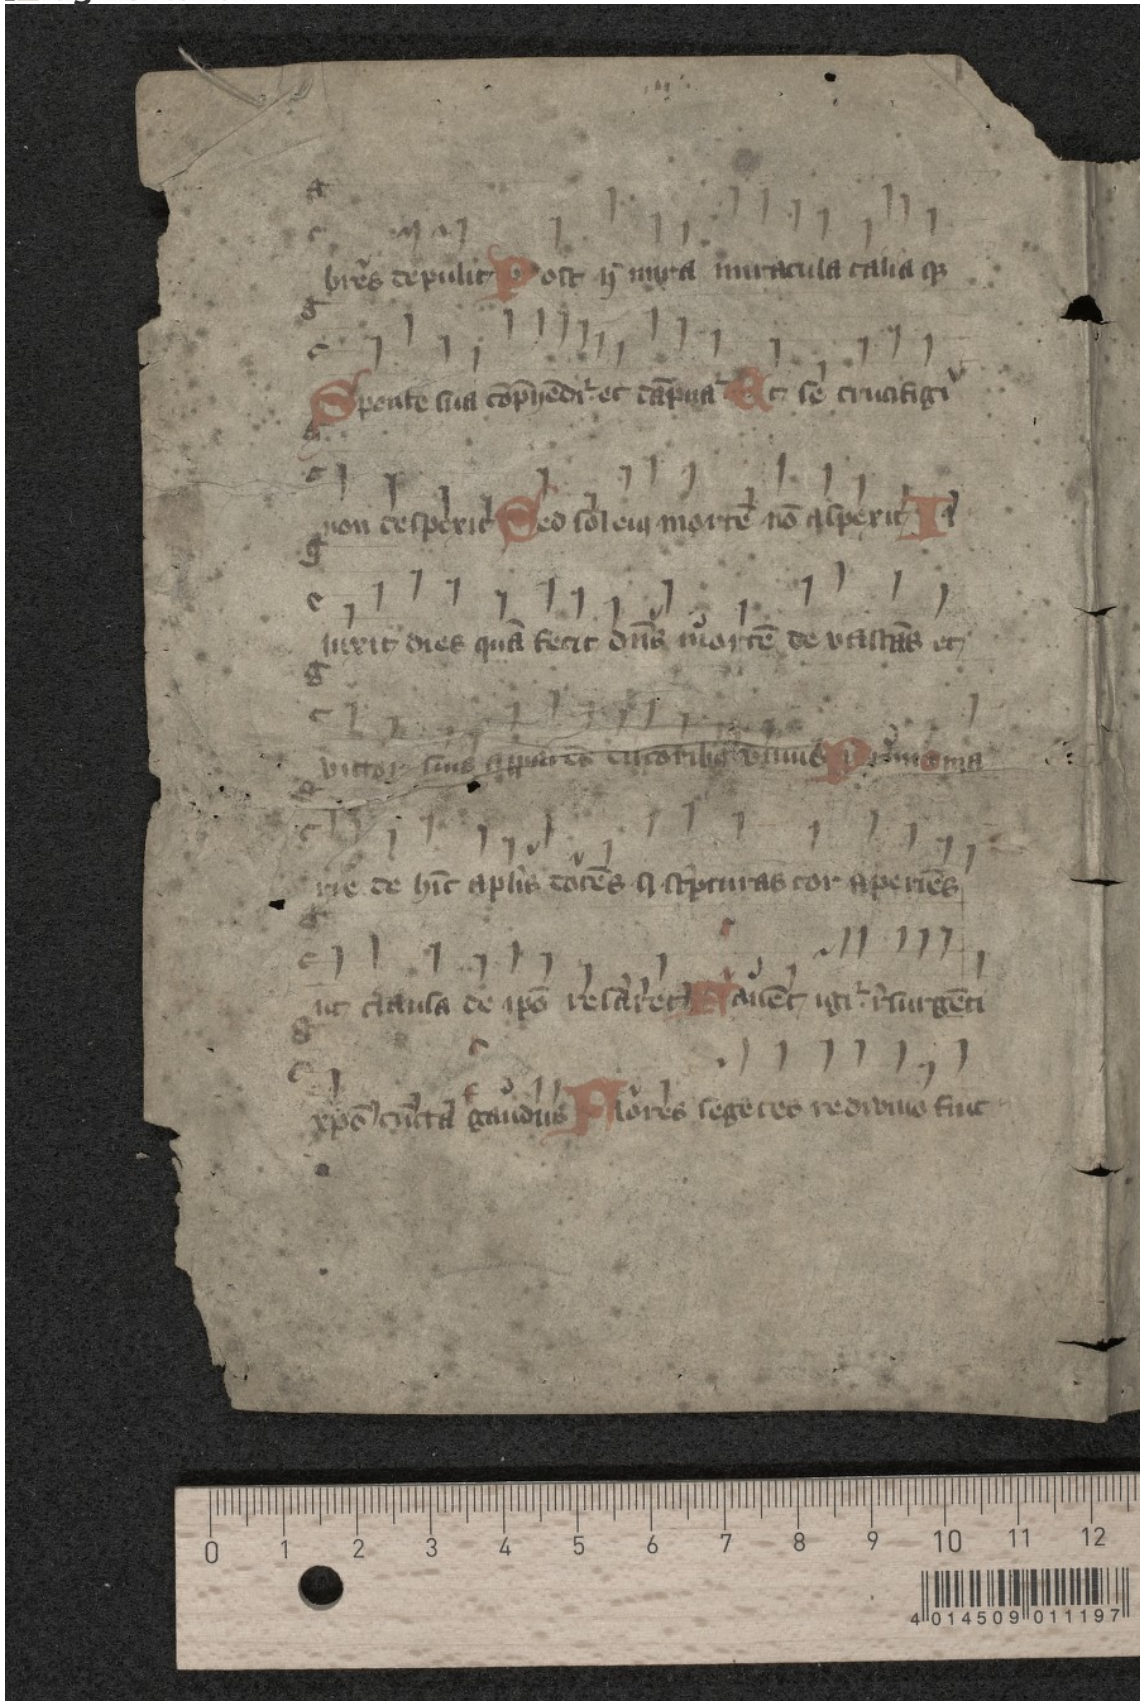 bres depulit Post h mira miracula talia q
Sponte sua co̅p̅hendit᷑ et da̅pnat᷑ Et se crucifigi
non despexit Sed sol eiꝯ morte̅ no̅ aspexit Il
luxit dies qua̅ fecit dn̅s morte̅ de vasta̅s et
victor suis appare̅s dilectoribꝯ vivus Primo ma
rie de hi̅c apl̅is doce̅s scripturas cor aperie̅s
ut clausa de ipo̅ reseraret Fave̅t igit᷑ resurge̅ti
xpo̅ cu̅cta gaudiis Flores segetes redivivo fruc
0 1 2 3 4 5 6 7 8 9 10 11 12
4 014509 011197